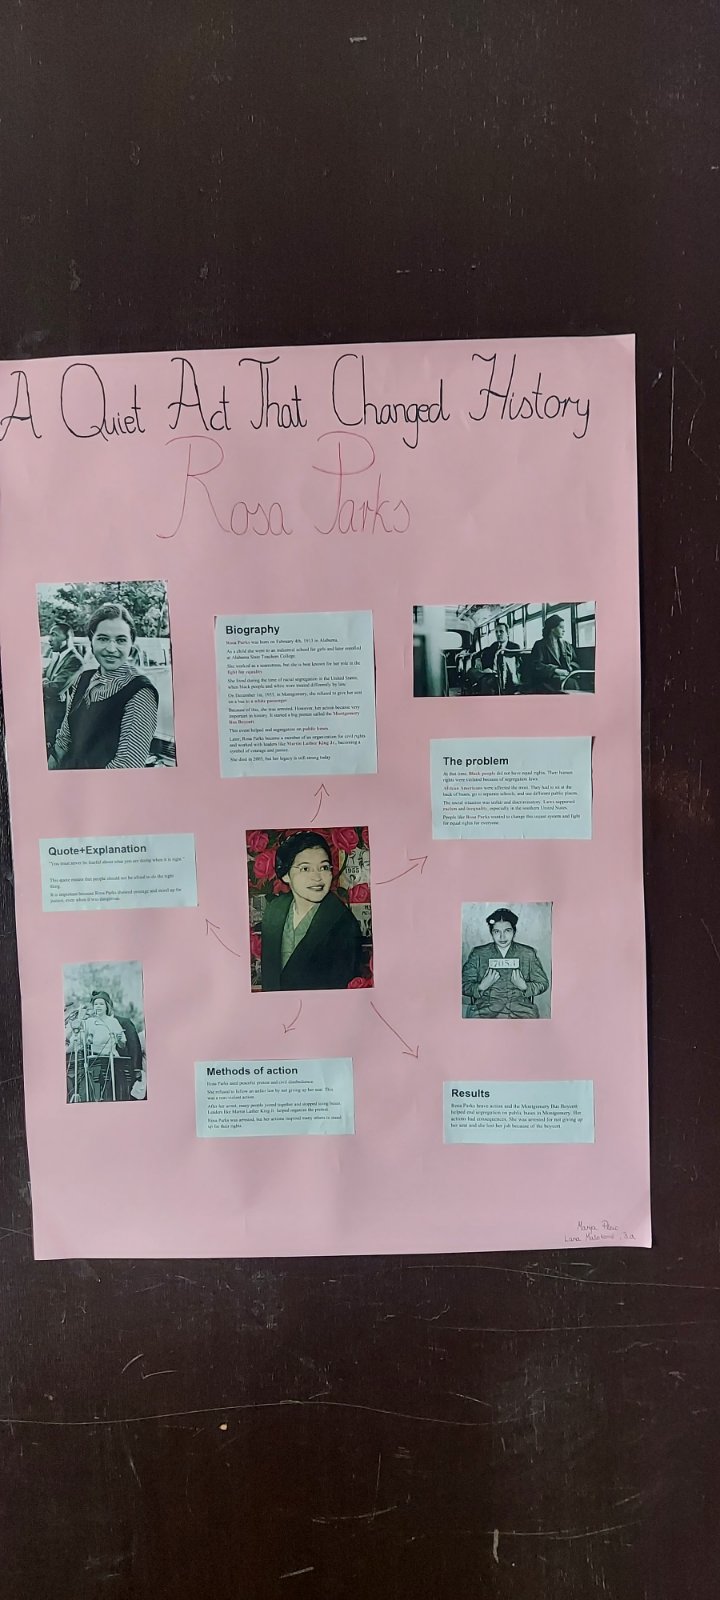 A Quiet Act That Changed History
Rosa Parks
Biography
Rosa Parks was born on February 4th, 1913 in Alabama.
As a child she went to an industrial school for girls and later enrolled
at Alabama State Teachers College.
She worked as a seamstress, but she is best known for her role in the
fight for equality.
She lived during the time of racial segregation in the United States,
when black people and white were treated differently by law.
On December 1st, 1955, in Montgomery, she refused to give her seat
on a bus to a white passenger.
Because of this, she was arrested. However, her action became very
important in history. It started a big protest called the Montgomery
Bus Boycott.
This event helped end segregation on public buses.
Later, Rosa Parks became a member of an organization for civil rights
and worked with leaders like Martin Luther King Jr., becoming a
symbol of courage and justice.
She died in 2005, but her legacy is still strong today.
The problem
At that time, Black people did not have equal rights. Their human
rights were violated because of segregation laws.
African Americans were affected the most. They had to sit at the
back of buses, go to separate schools, and use different public places.
The social situation was unfair and discriminatory. Laws supported
racism and inequality, especially in the southern United States.
People like Rosa Parks wanted to change this unjust system and fight
for equal rights for everyone.
Quote+Explanation
"You must never be fearful about what you are doing when it is right."
This quote means that people should not be afraid to do the right
thing.
It is important because Rosa Parks showed courage and stood up for
justice, even when it was dangerous.
7053
Methods of action
Rosa Parks used peaceful protest and civil disobedience.
She refused to follow an unfair law by not giving up her seat. This
was a non-violent action.
After her arrest, many people joined together and stopped using buses.
Leaders like Martin Luther King Jr. helped organize the protest.
Rosa Parks was arrested, but her actions inspired many others to stand
up for their rights.
Results
Rosa Parks brave action and the Montgomery Bus Boycott
helped end segregation on public buses in Montgomery. Her
actions had consequences. She was arrested for not giving up
her seat and she lost her job because of the boycott.
Marija
Lara 3.a